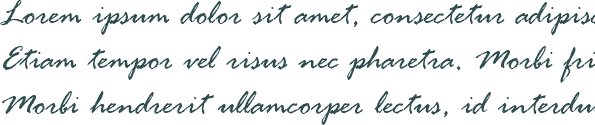 Lorem ipsum dolor sit amet, consectetur adipisc
Etiam tempor vel risus nec pharetra. Morbi fri
Morbi hendrerit ullamcorper lectus, id interdu